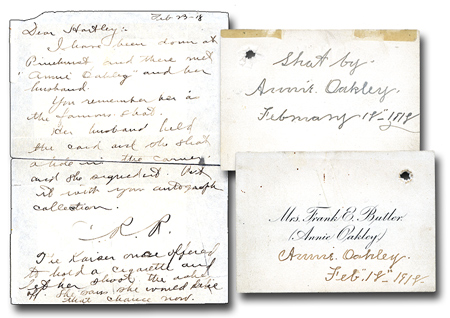 Feb 23-18
Dear Hartley:-
I have been down at
Pinehurst and there met
"Annie Oakley" and her
husband.
You remember her as
the famous shot.
Her husband held
the card and she shot
a hole in the corner
and she signed it. Put
it with your autograph
collection.
R. R.
The Kaiser once offered
to hold a cigarette and
let her shoot the ashes
off. She says she would like
that chance now.
Shot by.
Annie. Oakley.
February 19- 1918
Mrs. Frank E. Butler
(Annie Oakley)
Annie. Oakley.
Feb. 19- 1918.